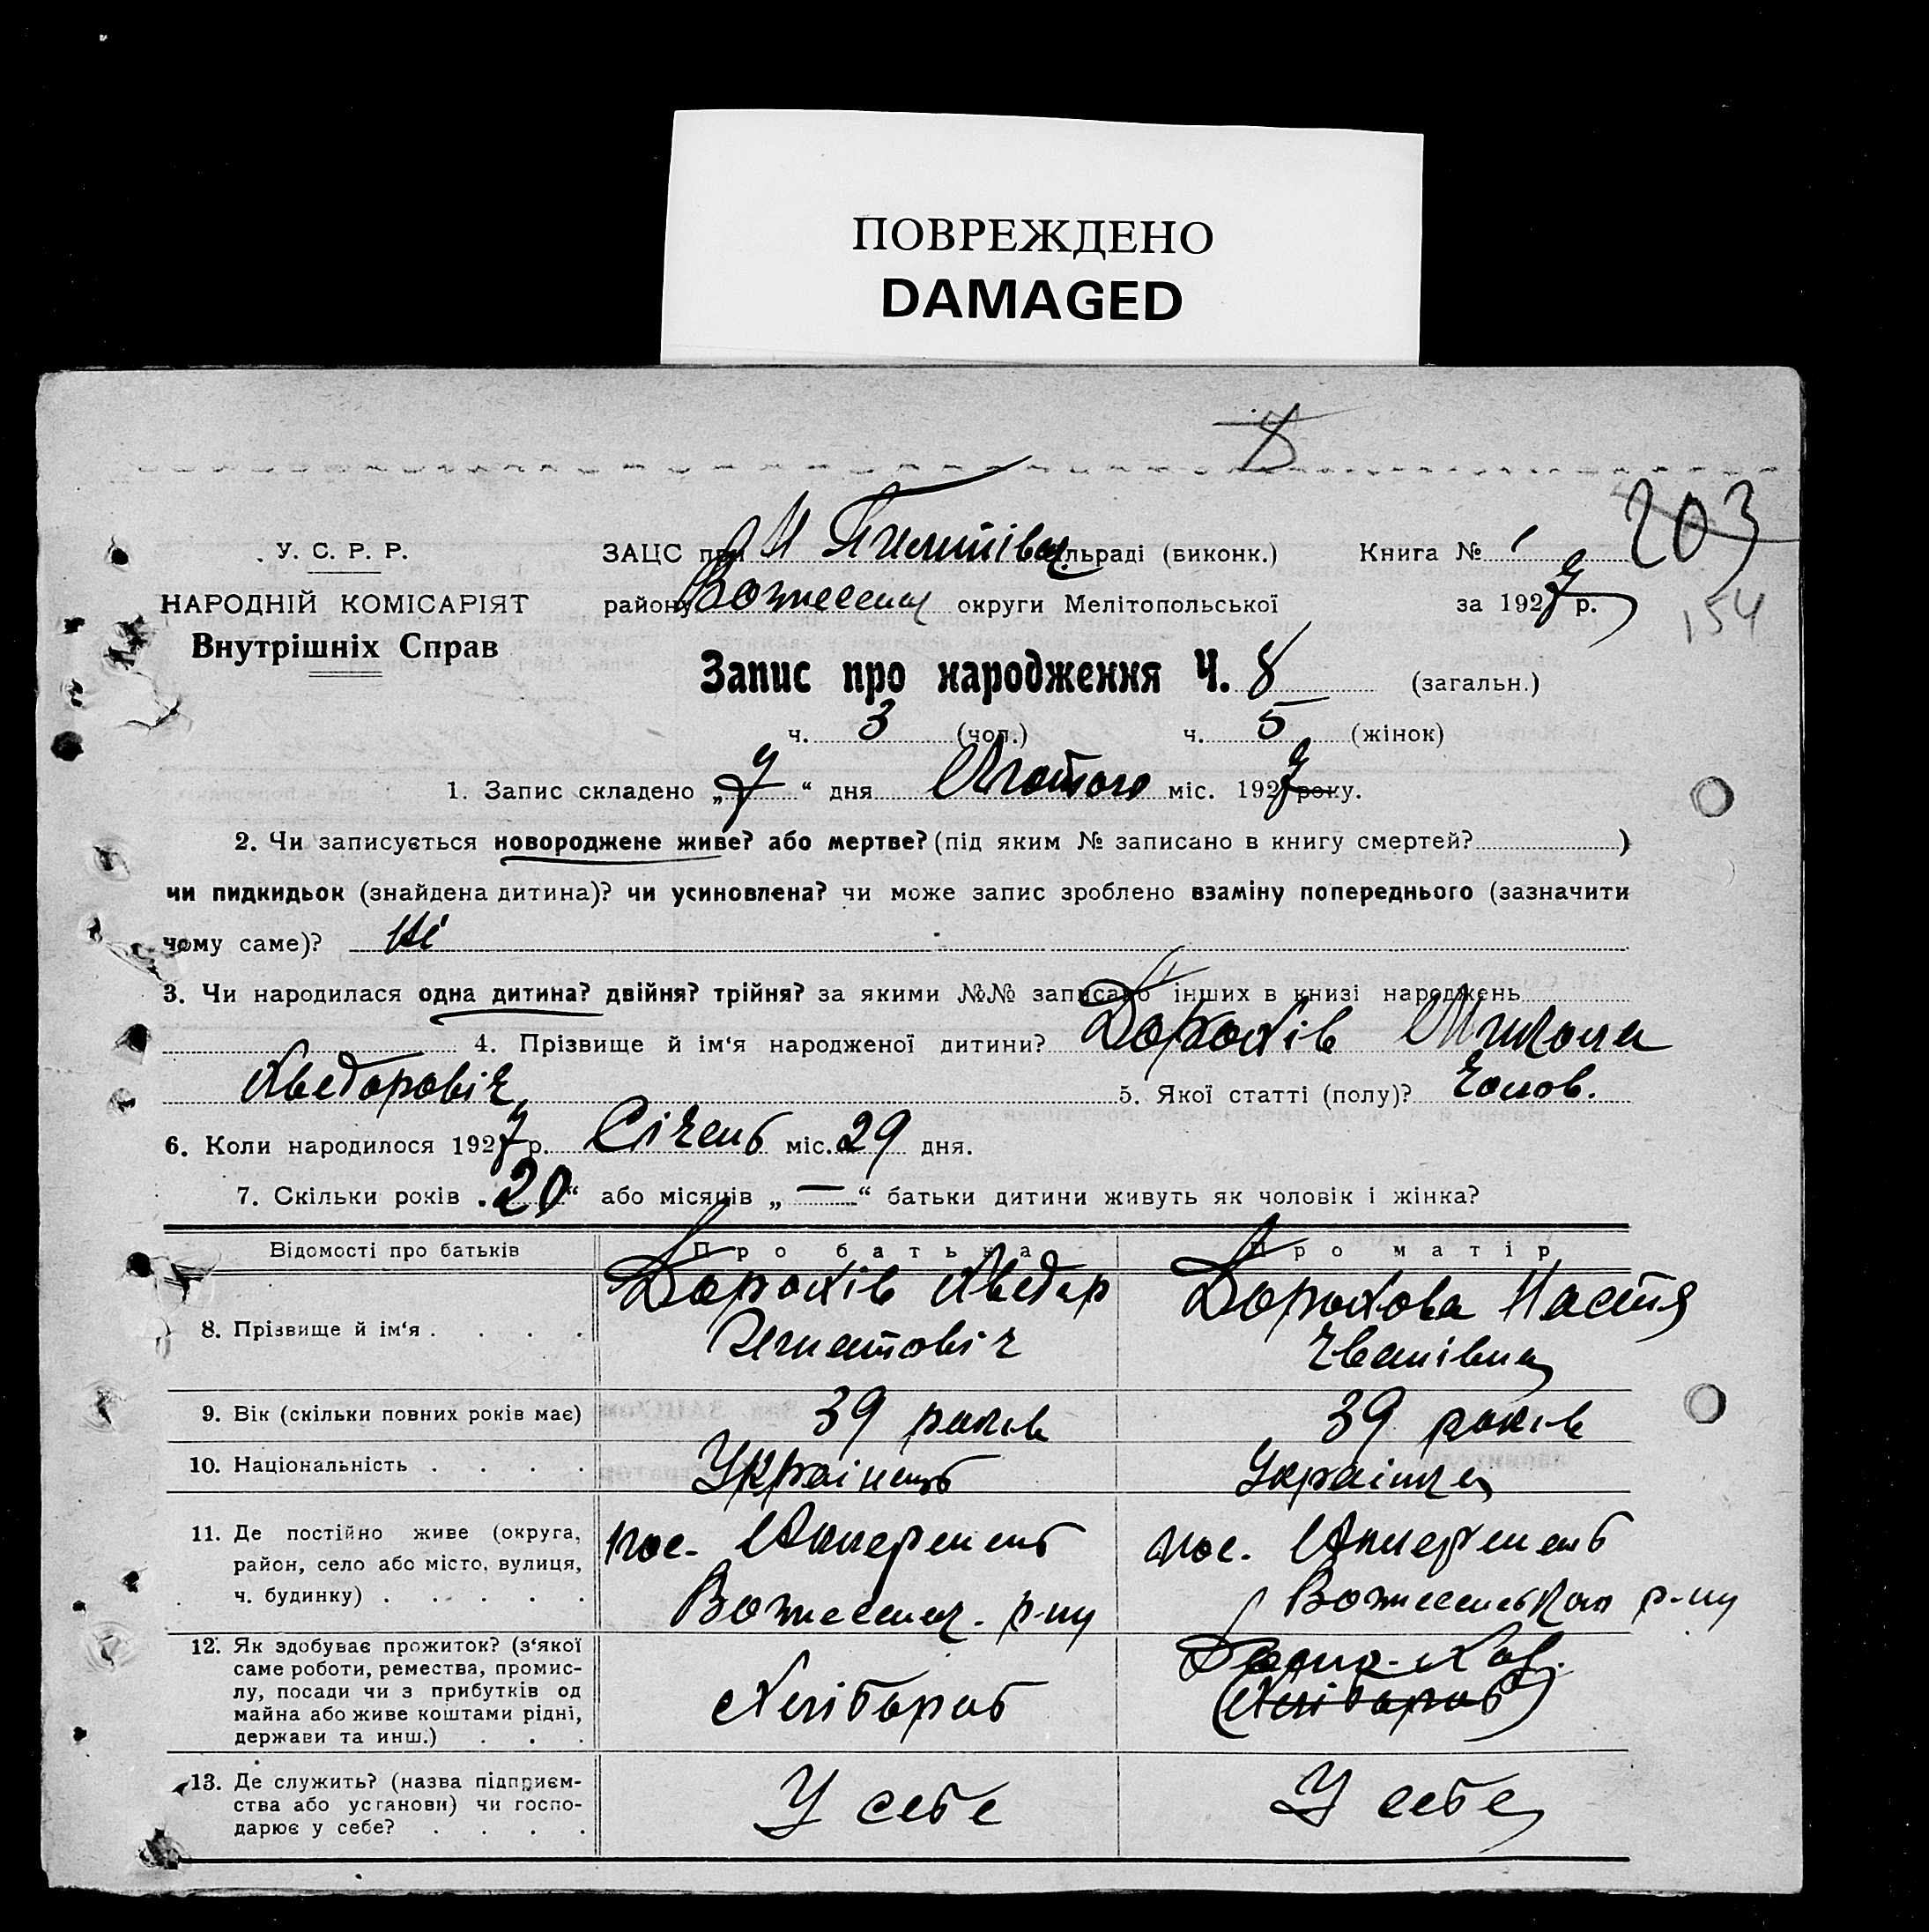 ПОВРЕЖДЕНО
DAMAGED
203
154
У. С. Р. Р.
НАРОДНІЙ КОМІСАРІЯТ
Внутрішніх Справ
ЗАЦС при М сільраді (виконк.) Книга № 1
району Вознесенск округи Мелітопольської за 1927 р.
Запис про народження Ч. 8 (загальн.)
ч. 3 (чол.) ч. 5 (жінок)
1. Запис складено „7“ дня Лютого міс. 1927 року.
2. Чи записується новороджене живе? або мертве? (під яким № записано в книгу смертей? )
чи пидкидьок (знайдена дитина)? чи усиновлена? чи може запис зроблено взаміну попереднього (зазначити
чому саме)? Ні
3. Чи народилася одна дитина? двійня? трійня? за якими №№ записано інших в книзі народжень
4. Прізвище й ім'я народженої дитини? Дорохів Микола
Хведоровіч 5. Якої статті (полу)? Чолов.
6. Коли народилося 1927 р. Січень міс. 29 дня.
7. Скільки років „20“ або місяців „—“ батьки дитини живуть як чоловік і жінка?
Відомості про батьків Про батька Про матір
8. Прізвище й ім'я . . . . Дорохів Хведор Дорохова Настя
Игнатовіч Іванівна
9. Вік (скільки повних років має) 39 років 39 років
10. Національність . . . . Українець Українка
11. Де постійно живе (округа,
район, село або місто, вулиця,
ч. будинку) . . . . . пос. Вознесенск. р-ну пос. Вознесенськаго р-ну
12. Як здобуває прожиток? (з'якої
саме роботи, ремества, промис-
лу, посади чи з прибутків од
майна або живе коштами рідні,
держави та инш.) . . . Хлібороб (Хлібороб)
13. Де служить? (назва підприєм-
ства або установи) чи госпо-
дарює у себе? . . . . У себе У себе